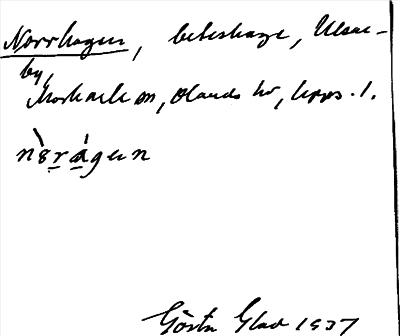 Norrhagen, beteshage, Ulvar-
by,
Morkarla sn, Olands hd, Upps. l.
nòrágen
Gösta Glad 1937